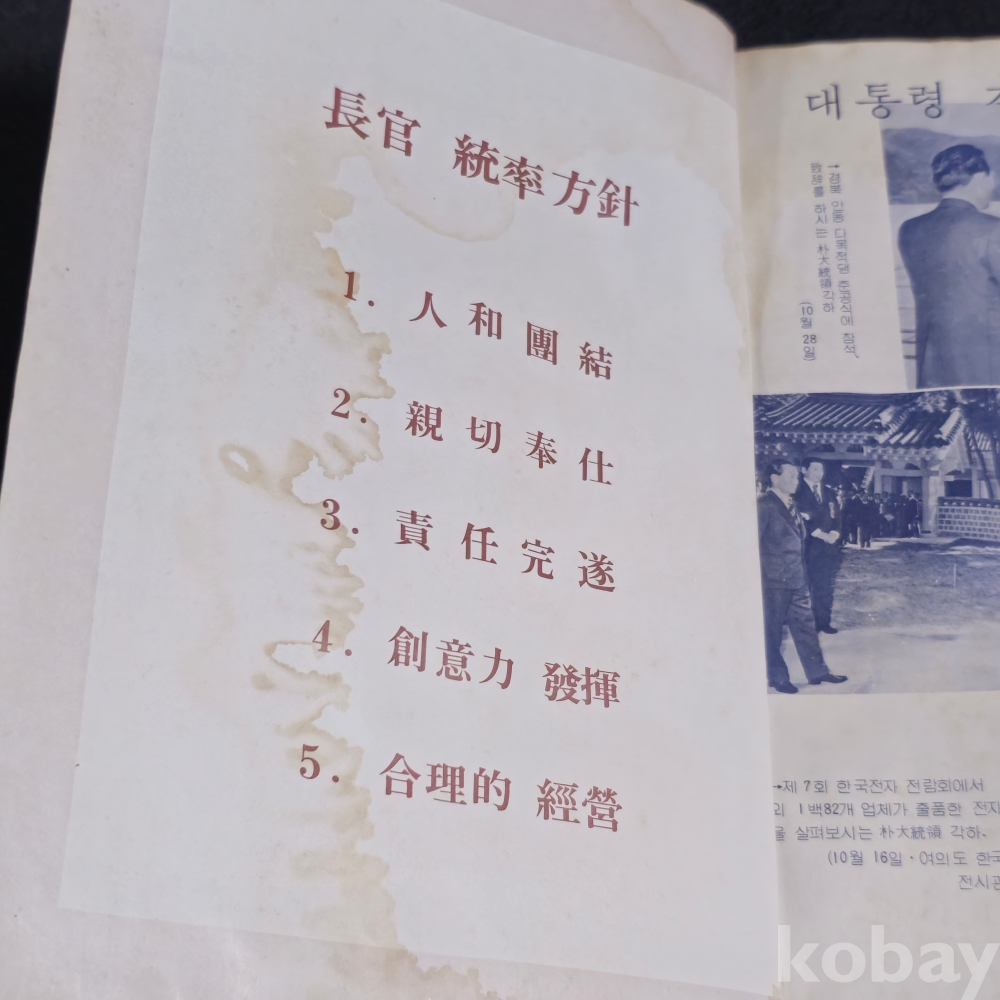 長官 統率方針
1. 人和團結
2. 親切奉仕
3. 責任完遂
4. 創意力 發揮
5. 合理的 經營
대통령
→경북 안동 다목적댐 준공식에 참석,
致辞를 하시는 朴大統領각하
(10월 28일)
→제 7회 한국전자 전람회에서
외 1백82개 업체가 출품한 전자
을 살펴보시는 朴大統領 각하.
(10월 16일·여의도 한국
전시관
kobay